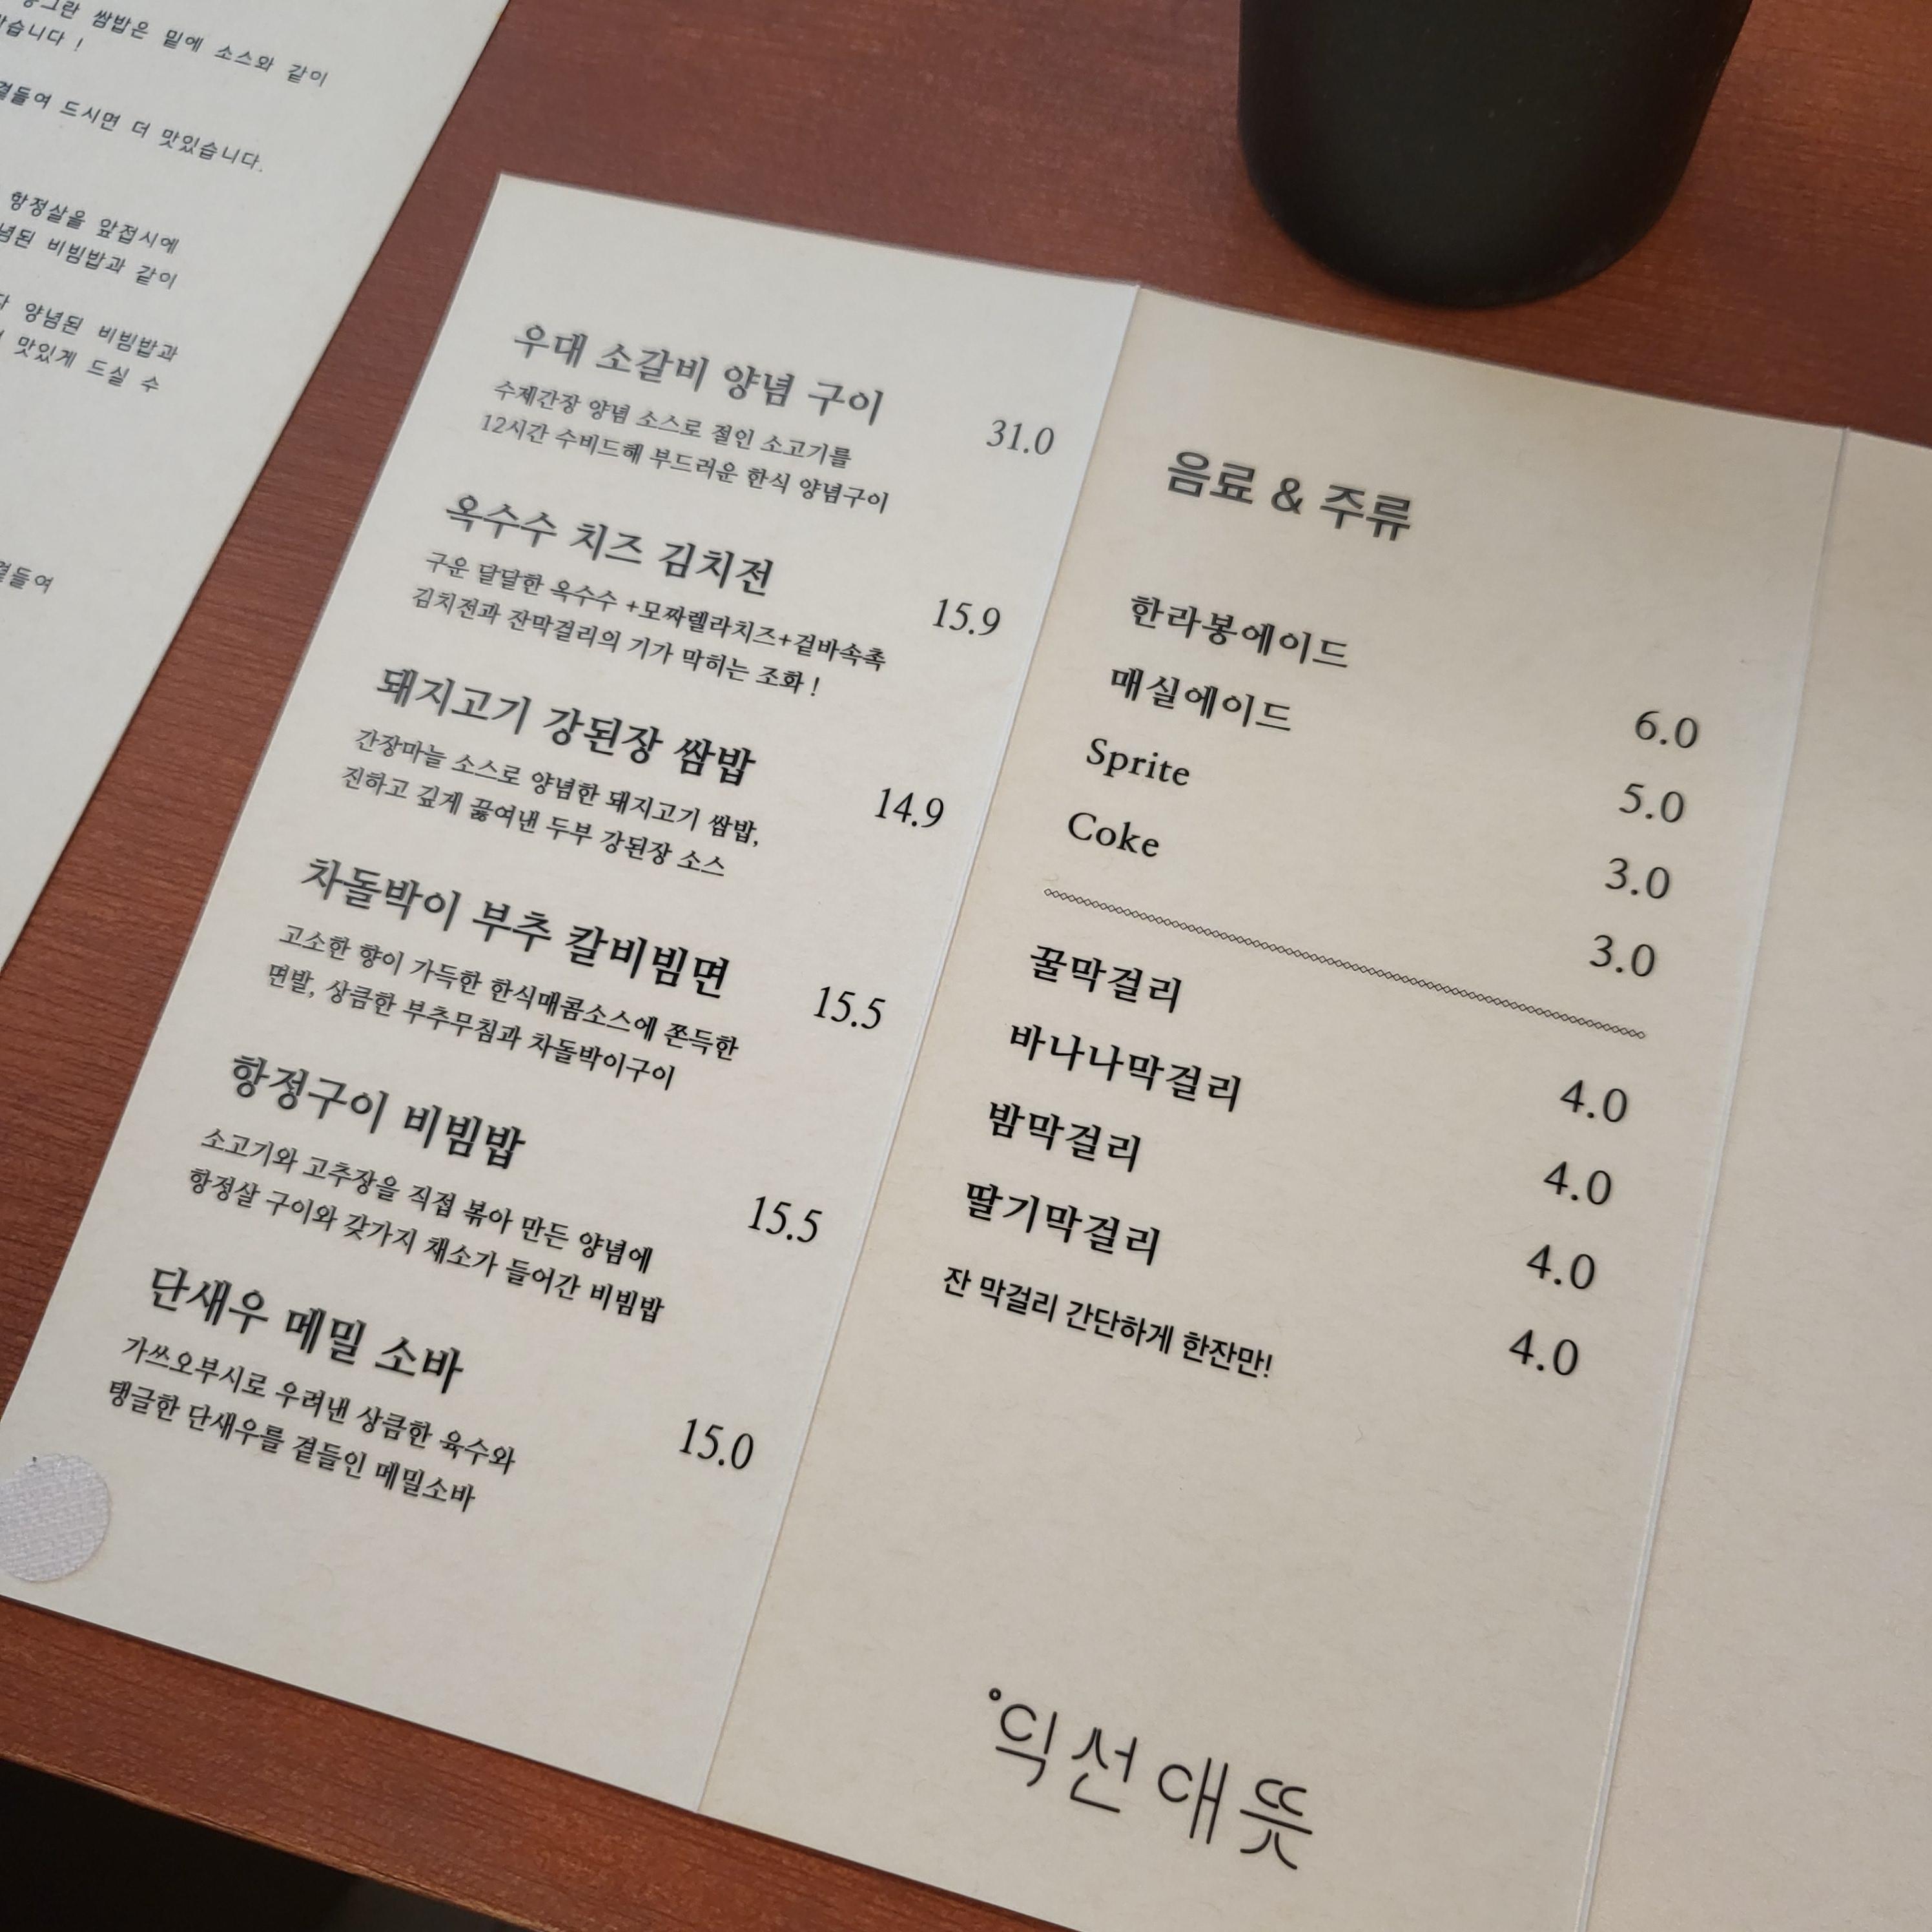 쌈밥은 밑에 소스와 같이
드시면 더 맛있습니다.
항정살을 앞접시에
비빔밥과 같이
양념된 비빔밥과
맛있게 드실 수
우대 소갈비 양념 구이
31.0
수제간장 양념 소스로 절인 소고기를
12시간 수비드해 부드러운 한식 양념구이
옥수수 치즈 김치전
15.9
구운 달달한 옥수수 +모짜렐라치즈+겉바속촉
김치전과 잔막걸리의 기가 막히는 조화 !
돼지고기 강된장 쌈밥
14.9
간장마늘 소스로 양념한 돼지고기 쌈밥,
진하고 깊게 끓여낸 두부 강된장 소스
차돌박이 부추 칼비빔면
15.5
고소한 향이 가득한 한식매콤소스에 쫀득한
면발, 상큼한 부추무침과 차돌박이구이
항정구이 비빔밥
15.5
소고기와 고추장을 직접 볶아 만든 양념에
항정살 구이와 갖가지 채소가 들어간 비빔밥
단새우 메밀 소바
15.0
가쓰오부시로 우려낸 상큼한 육수와
탱글한 단새우를 곁들인 메밀소바
음료 & 주류
한라봉에이드 6.0
매실에이드 5.0
Sprite 3.0
Coke 3.0
꿀막걸리 4.0
바나나막걸리 4.0
밤막걸리 4.0
딸기막걸리 4.0
잔 막걸리 간단하게 한잔만!
익선애뜻